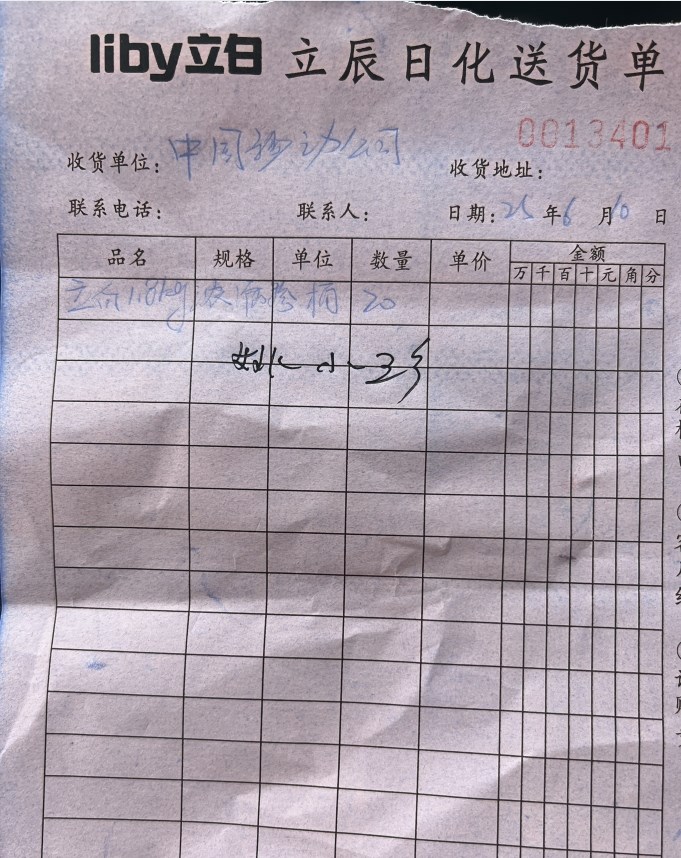 liby立白 立辰日化送货单
0013401
收货单位：中国移动公司 收货地址：
联系电话： 联系人： 日期：25年6月10日
品名 规格 单位 数量 单价 金额
万 千 百 十 元 角 分
立白1.8kg 桶 20